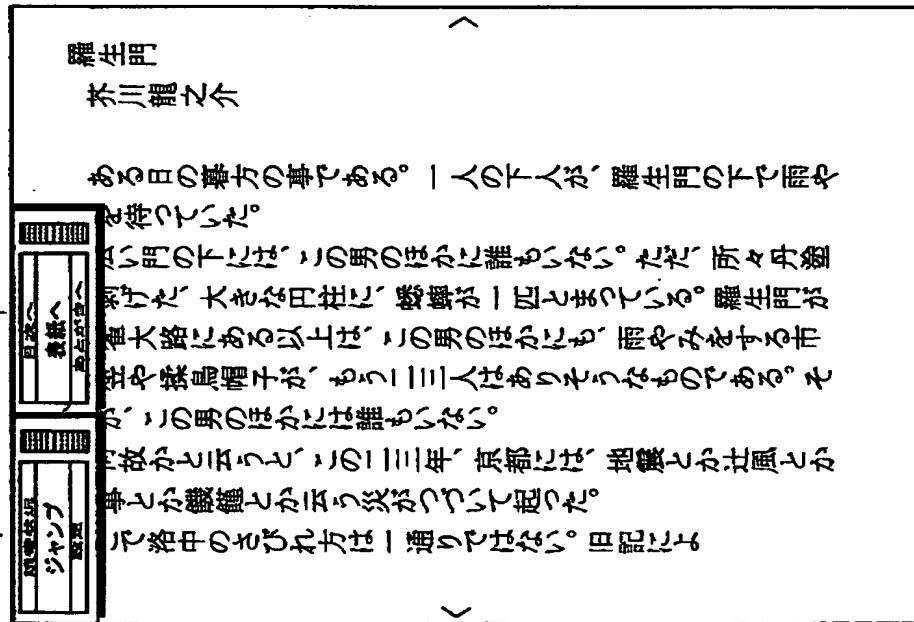 羅生門
芥川龍之介
ある日の暮方の事である。一人の下人が、羅生門の下で雨や
を待っていた。
広い門の下には、この男のほかに誰もいない。ただ、所々丹塗
剥げた、大きな円柱に、蟋蟀が一匹とまっている。羅生門が
雀大路にある以上は、この男のほかにも、雨やみをする市
笠や揉烏帽子が、もう二三人はありそうなものである。そ
が、この男のほかには誰もいない。
何故かと云うと、この二三年、京都には、地震とか辻風とか
事とか饑饉とか云う災がつづいて起った。
で洛中のさびれ方は一通りではない。旧記によ
目次へ
表紙へ
ジャンプ
設定